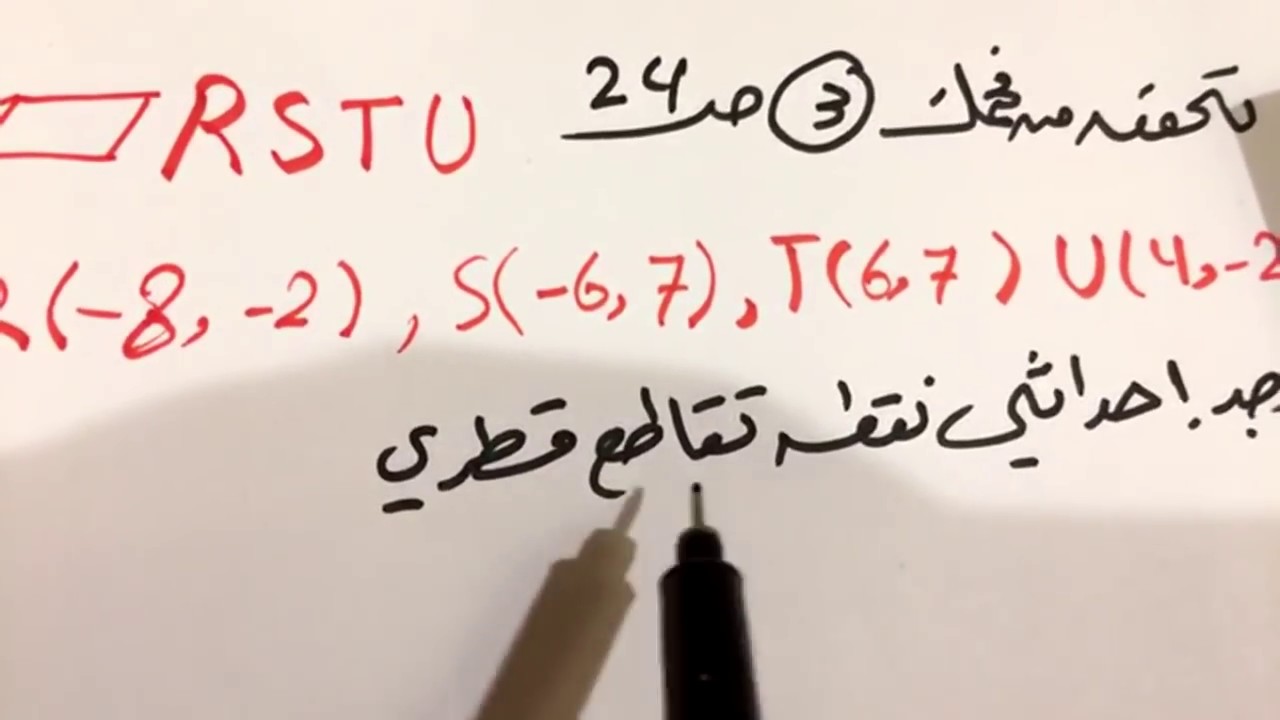 تحقق من فهمك ③ صـ 24 RSTU
(-8, -2), S(-6, 7), T(6, 7) U(4, -2
جد احداثي نقطة تقاطع قطري